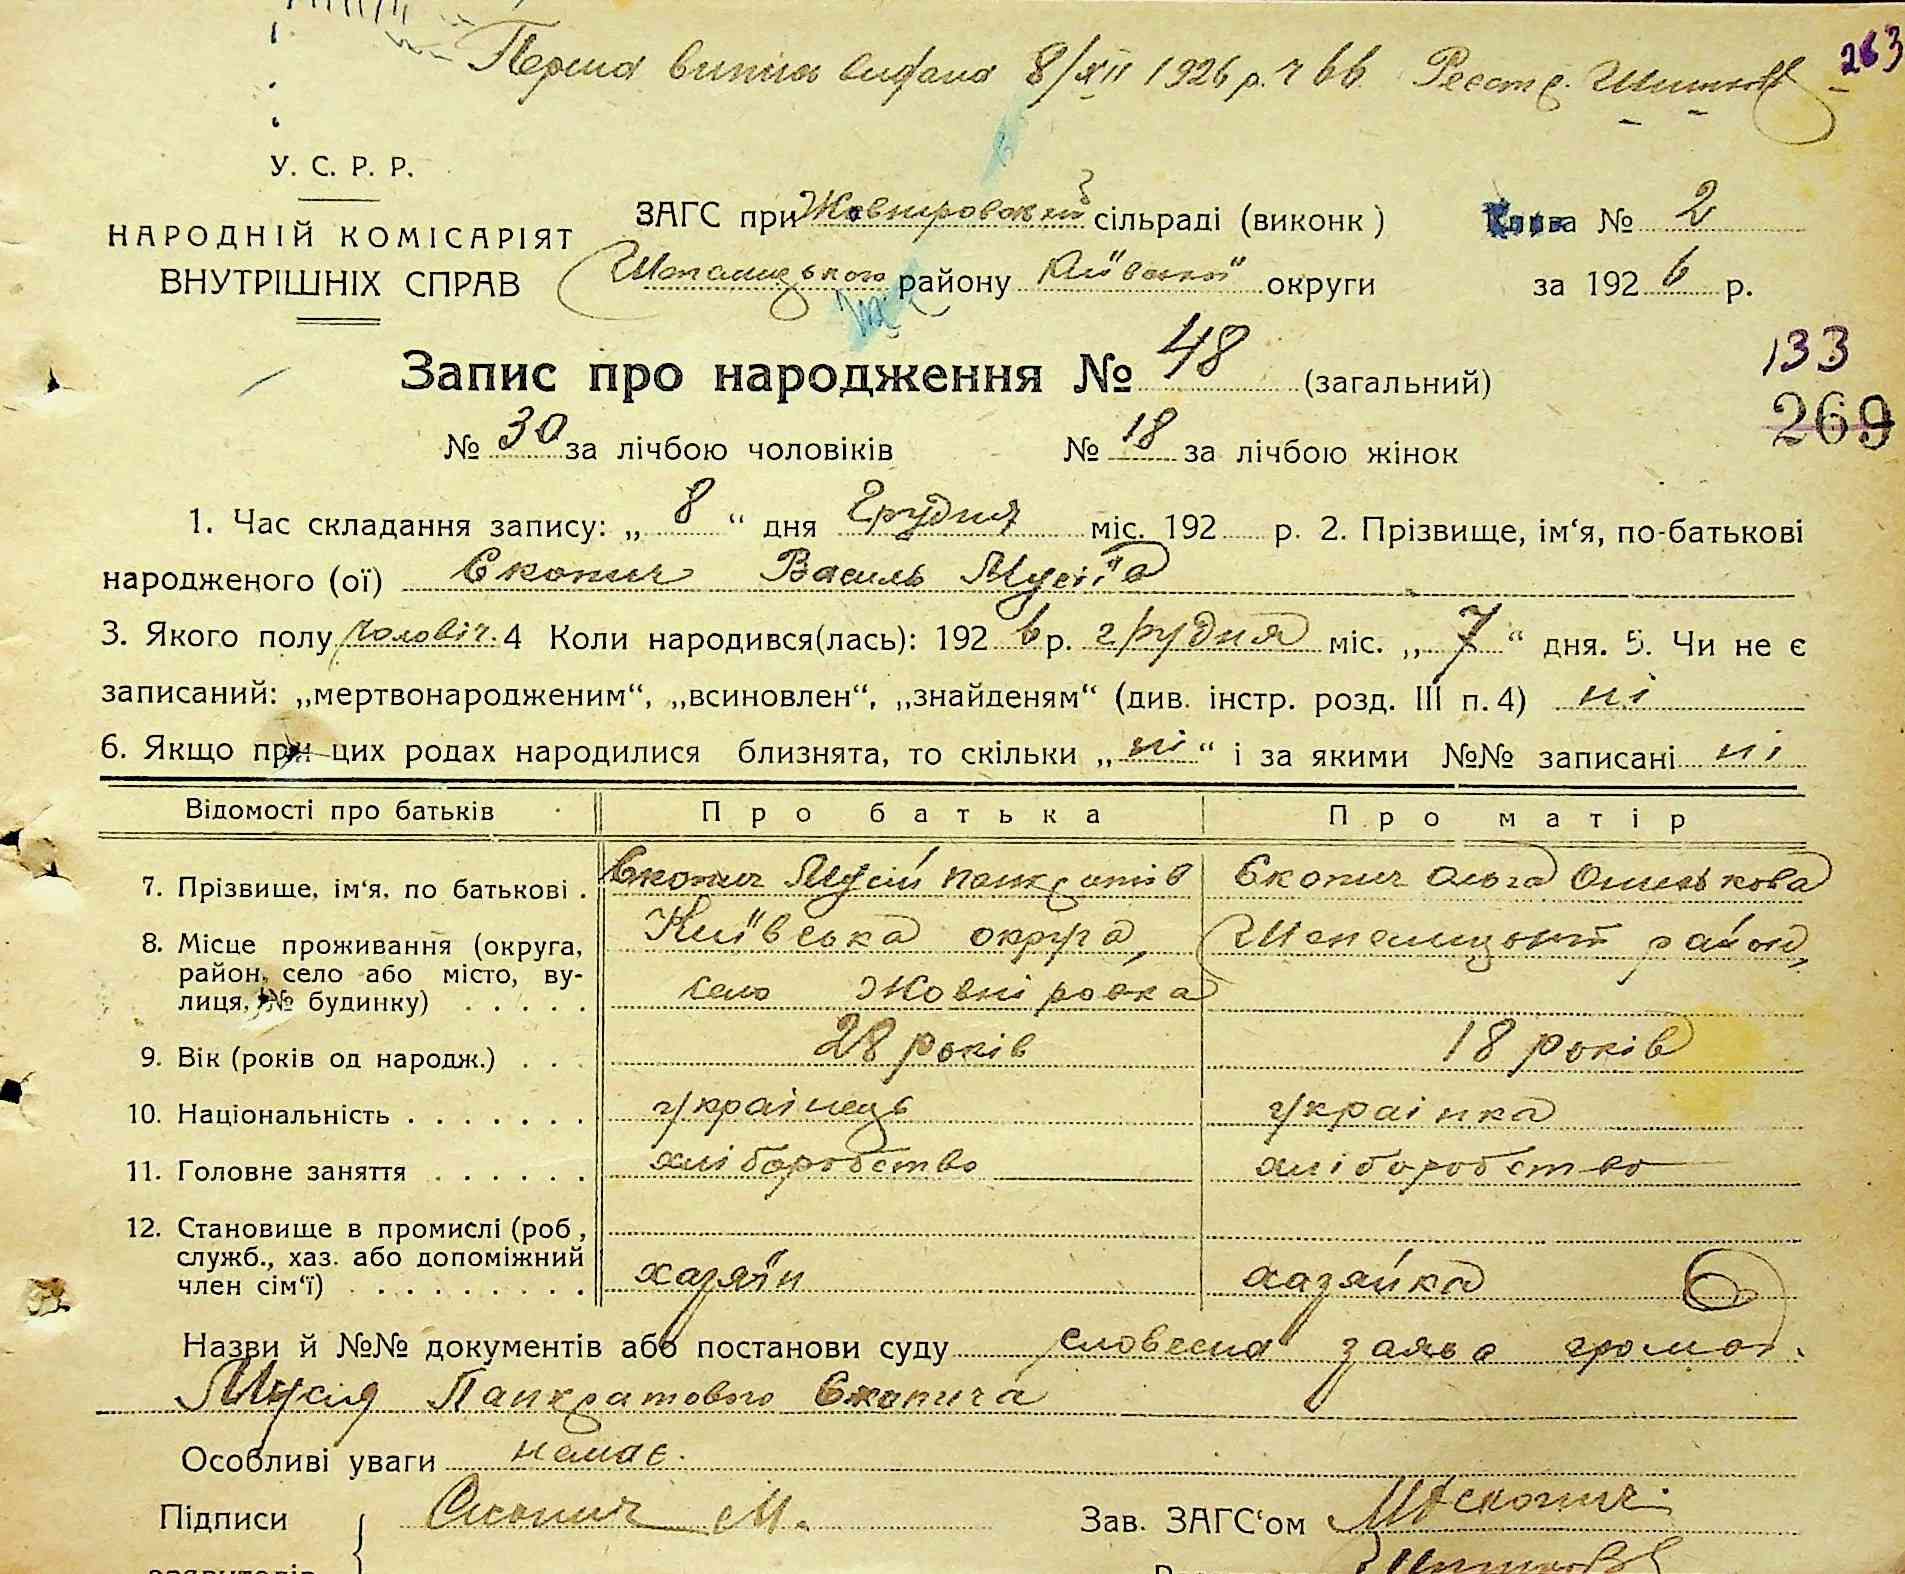 Перша випись видана 8/XII 1926 р. ч 66. Реестр.
283
У. С. Р. Р.
НАРОДНІЙ КОМІСАРІЯТ
ВНУТРІШНІХ СПРАВ
ЗАГС при Жовніровскій сільраді (виконк)
Шепелицького району Київської округи
Книга № 2
за 1926 р.
Запис про народження № 48 (загальний)
133
269
№ 30 за лічбою чоловіків № 18 за лічбою жінок
1. Час складання запису: „8“ дня Грудня міс. 192 р. 2. Прізвище, ім‘я, по-батькові
народженого (ої) Скопич Василь Мусіїв
3. Якого полу чоловіч. 4 Коли народився(лась): 1926 р. грудня міс. „7“ дня. 5. Чи не є
записаний: „мертвонародженим“, „всиновлен“, „знайденям“ (див. інстр. розд. III п. 4) ні
6. Якщо при цих родах народилися близнята, то скільки „ні“ і за якими №№ записані ні
Відомості про батьків Про батька Про матір
7. Прізвище, ім‘я, по батькові . Скопич Мусій Панкратів Скопич Ольга Омелькова
8. Місце проживання (округа, Київська округа, Шепелицький район,
район, село або місто, ву-
лиця, № будинку) . . . . . село Жовніровка
9. Вік (років од народж.) . . . 28 років 18 років
10. Національність . . . . . . . українець українка
11. Головне заняття . . . . . . хліборобство хліборобство
12. Становище в промислі (роб,
служб., хаз. або допоміжний
член сім‘ї) . . . . . . . . . хазяїн хазяйка
Назви й №№ документів або постанови суду словесна заява громад.
Мусія Панкратового Скопича
Особливі уваги немає.
Підписи Скопич М. Зав. ЗАГС‘ом Скопич
заявителів